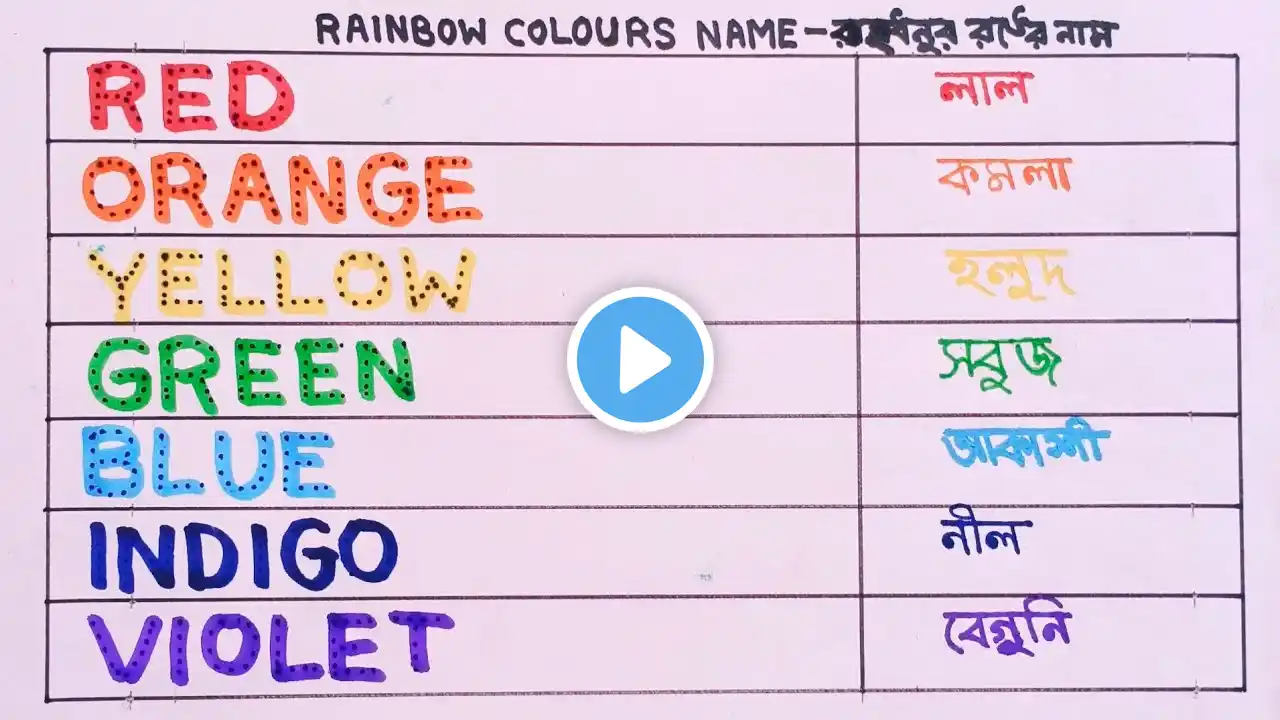 RAINBOW COLOURS NAME - রংধনুর রঙের নাম
RED লাল
ORANGE কমলা
YELLOW হলুদ
GREEN সবুজ
BLUE আকাশী
INDIGO নীল
VIOLET বেগুনি